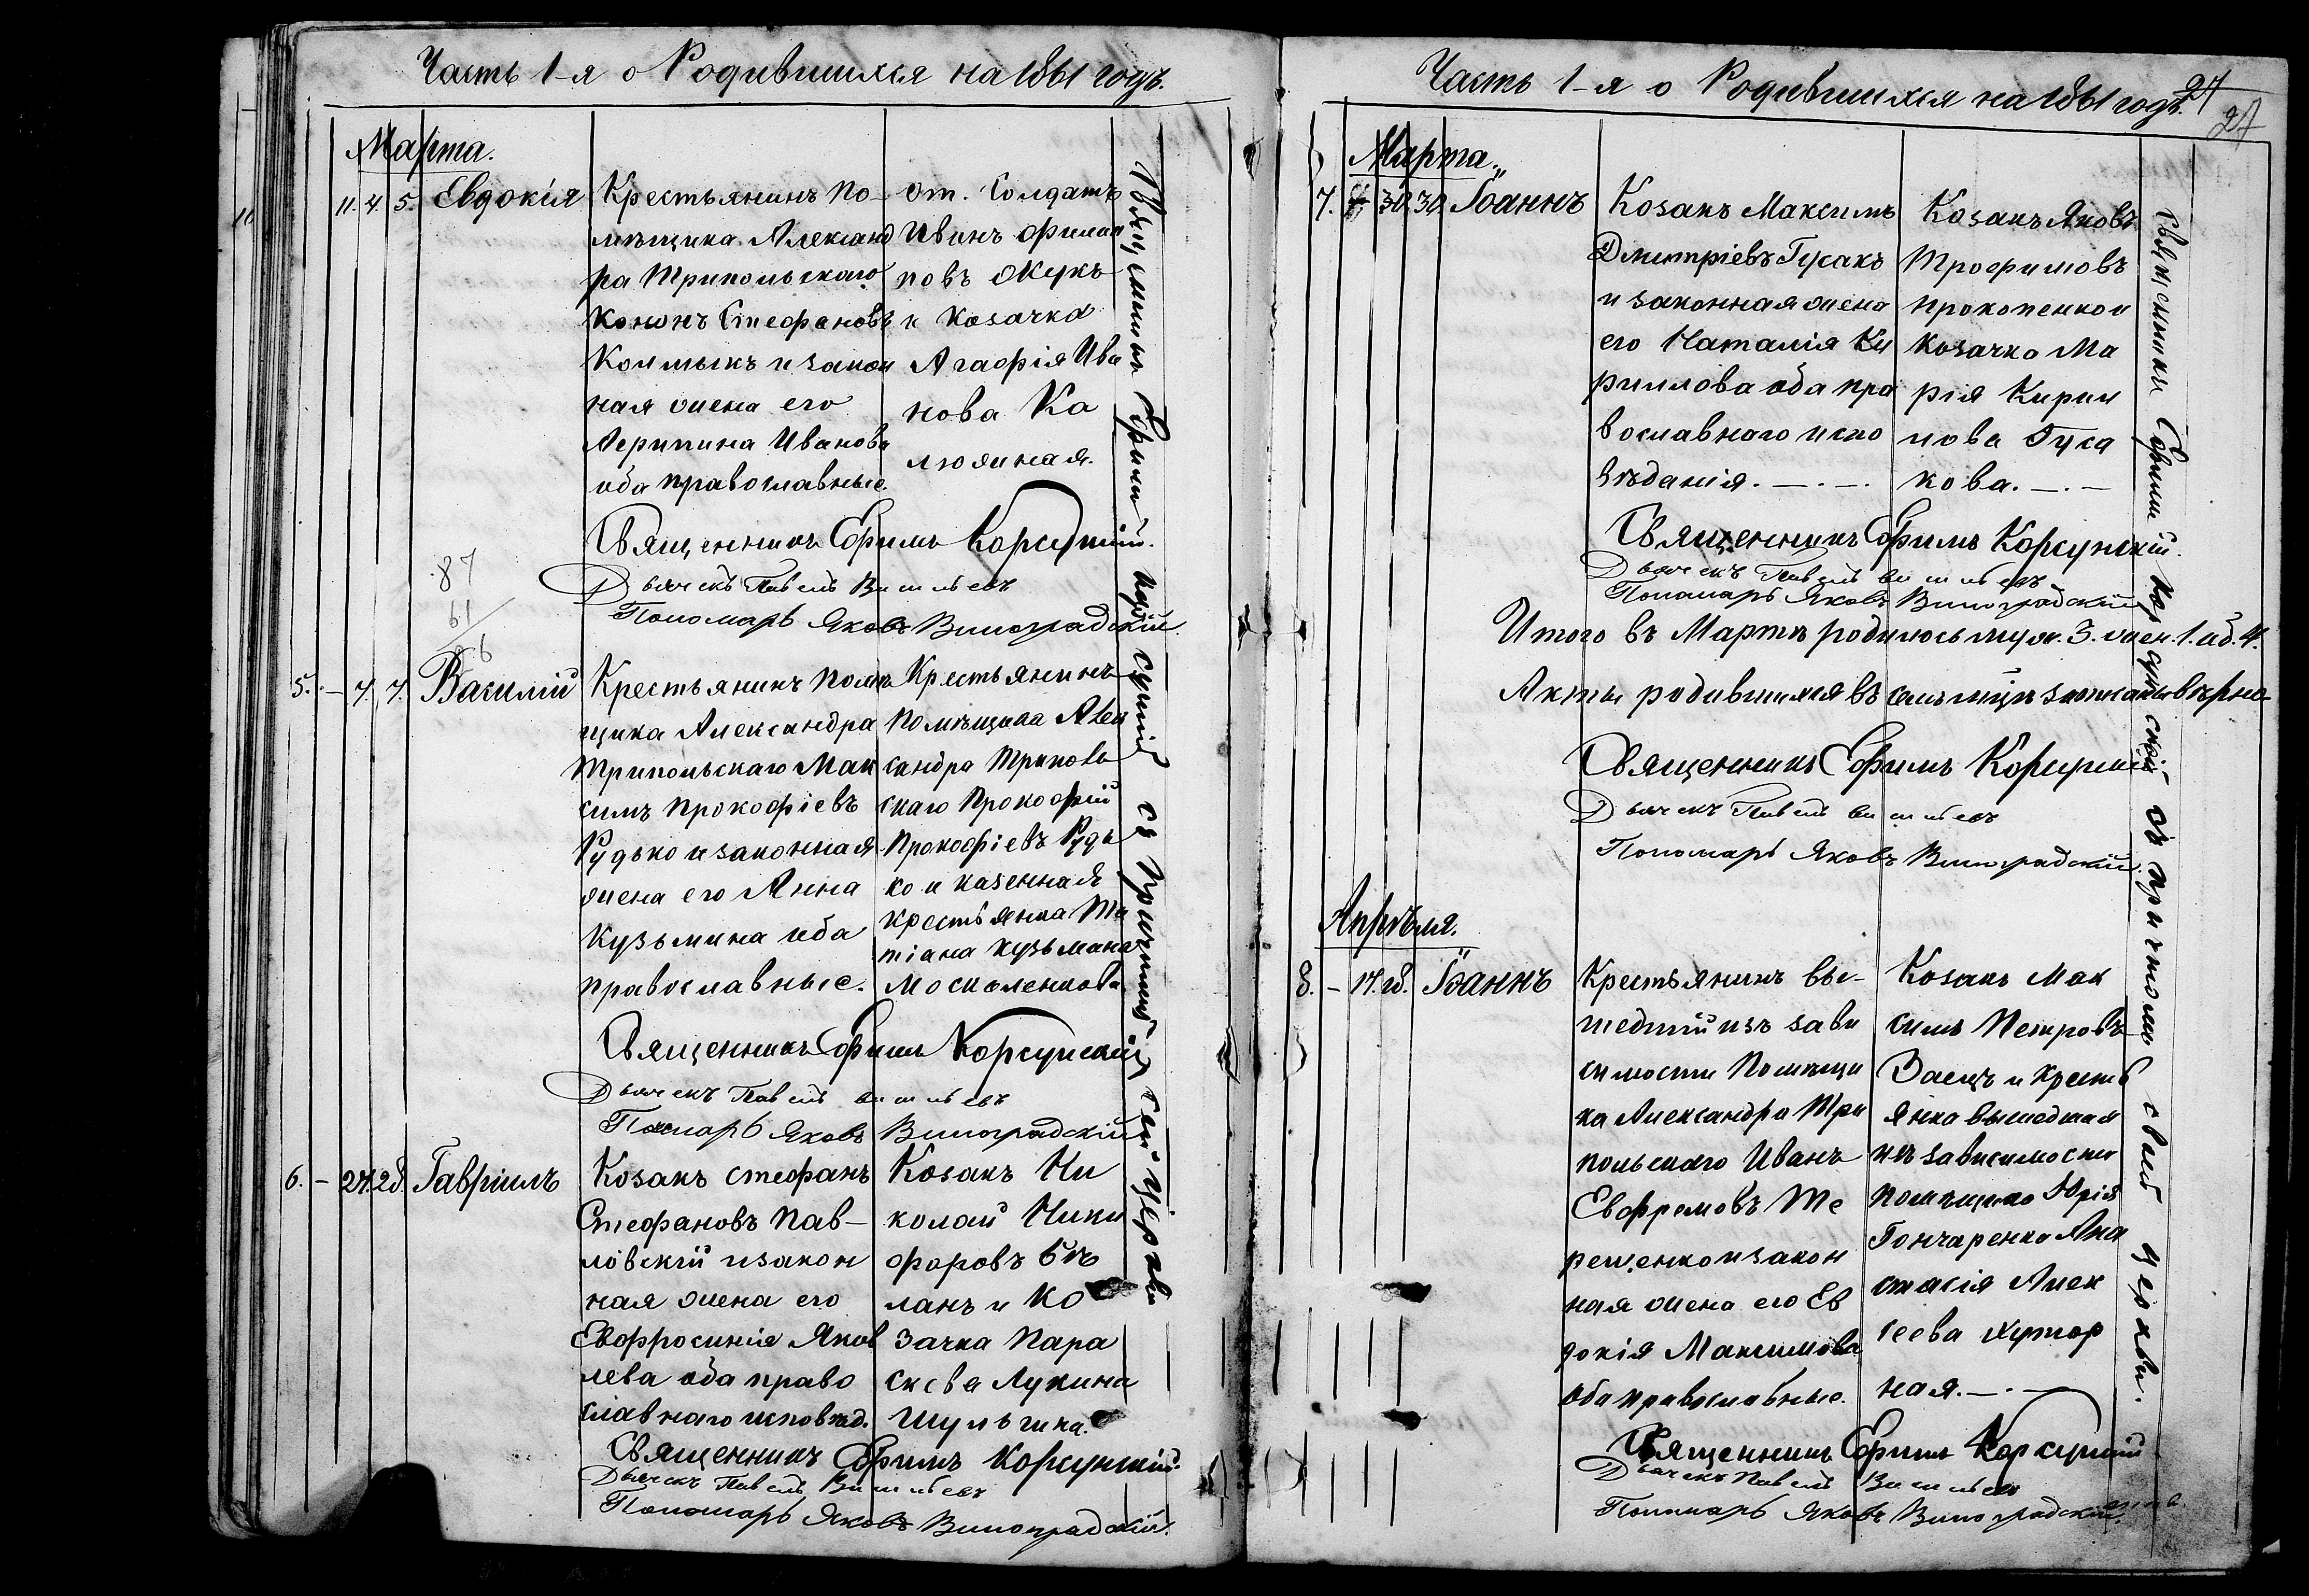 Часть 1-я о Родившихся на 1861 годъ.
Марта.
11. 4. 5. Евдокія
Крестьянинъ по-
мѣщика Александ
ра Трипольскаго
Кононъ Стефановъ
Колмыкъ и закон
ная жена его
Агрипина Иванова
оба православные.
От. Солдатъ
Иванъ Филип
повъ Жукъ
и Козачка
Агафія Ива
нова Ка
люжная.
Священникъ Ефимъ Корсунскій.
Дьячекъ Павелъ
Пономарь Яковъ Виноградскій.
87
61
26
5. – 7. 7. Василій
Крестьянинъ помѣ
щика Александра
Трипольскаго Мак
симъ Прокофіевъ
Рудько и законная
жена его Анна
Кузьмина оба
православные.
Крестьянинъ
Помѣщика Алек
сандра Триполь
скаго Прокофій
Прокофіевъ Рудь
ко и казенная
крестьянка Та
тіана Кузьмина
Москаленкова
Священникъ Ефимъ Корсунскій
Дьячекъ Павелъ
Пономарь Яковъ Виноградскій
6. – 27. 28. Гавріилъ
Козакъ Стефанъ
Стефановъ Пав-
ловскій и закон
ная жена его
Евфросинія Яков
лева оба право
славнаго исповѣд.
Козакъ Ни
колай Ники
форовъ Бѣ
ланъ и Ко
зачка Пара
скева Лукина
Шульгина.
Священникъ Ефимъ Корсунскій.
Дьячекъ Павелъ
Пономарь Яковъ Виноградскій.
Священникъ Ефимій Корсунскій съ причтомъ сей церкви
Часть 1-я о Родившихся на 1861 годъ.
27
27
Марта.
7. 30 30 Іоаннъ
Козакъ Максимъ
Дмитріевъ Гусакъ
и законная жена
его Наталія Ки
риллова оба пра
вославнаго испо
вѣданія.
Козакъ Яковъ
Трофимовъ
Прокопенко и
Козачка Ма
рія Кирил
лова Гуса
кова.
Священникъ Ефимъ Корсунскій.
Дьячекъ Павелъ
Пономарь Яковъ Виноградскій
Итого въ Мартѣ родилось муж. 3. жен. 1. об. 4.
Акты родившихся въ семъ мцѣ записаны вѣрно
Священникъ Ефимъ Корсунскій
Дьячекъ Павелъ
Пономарь Яковъ Виноградскій.
Апрѣля.
8. – 17. 18. Іоаннъ
Крестьянинъ вы-
шедшій изъ зави
симости Помѣщи
ка Александра Три
польскаго Иванъ
Евфремовъ Те
рещенко и закон
ная жена его Ев
докія Максимова
оба православные.
Козакъ Мак
симъ Петровъ
Заецъ и Кресть
янка вышедшая
изъ зависимости
помѣщика Юрія
Гончаренко Ана
стасія Алек
сеева Хутор
ная.
Священникъ Ефимъ Корсунскій
Дьячекъ Павелъ
Пономарь Яковъ Виноградскій.
Священникъ Ефимій Корсунскій съ причтомъ сей церкви.